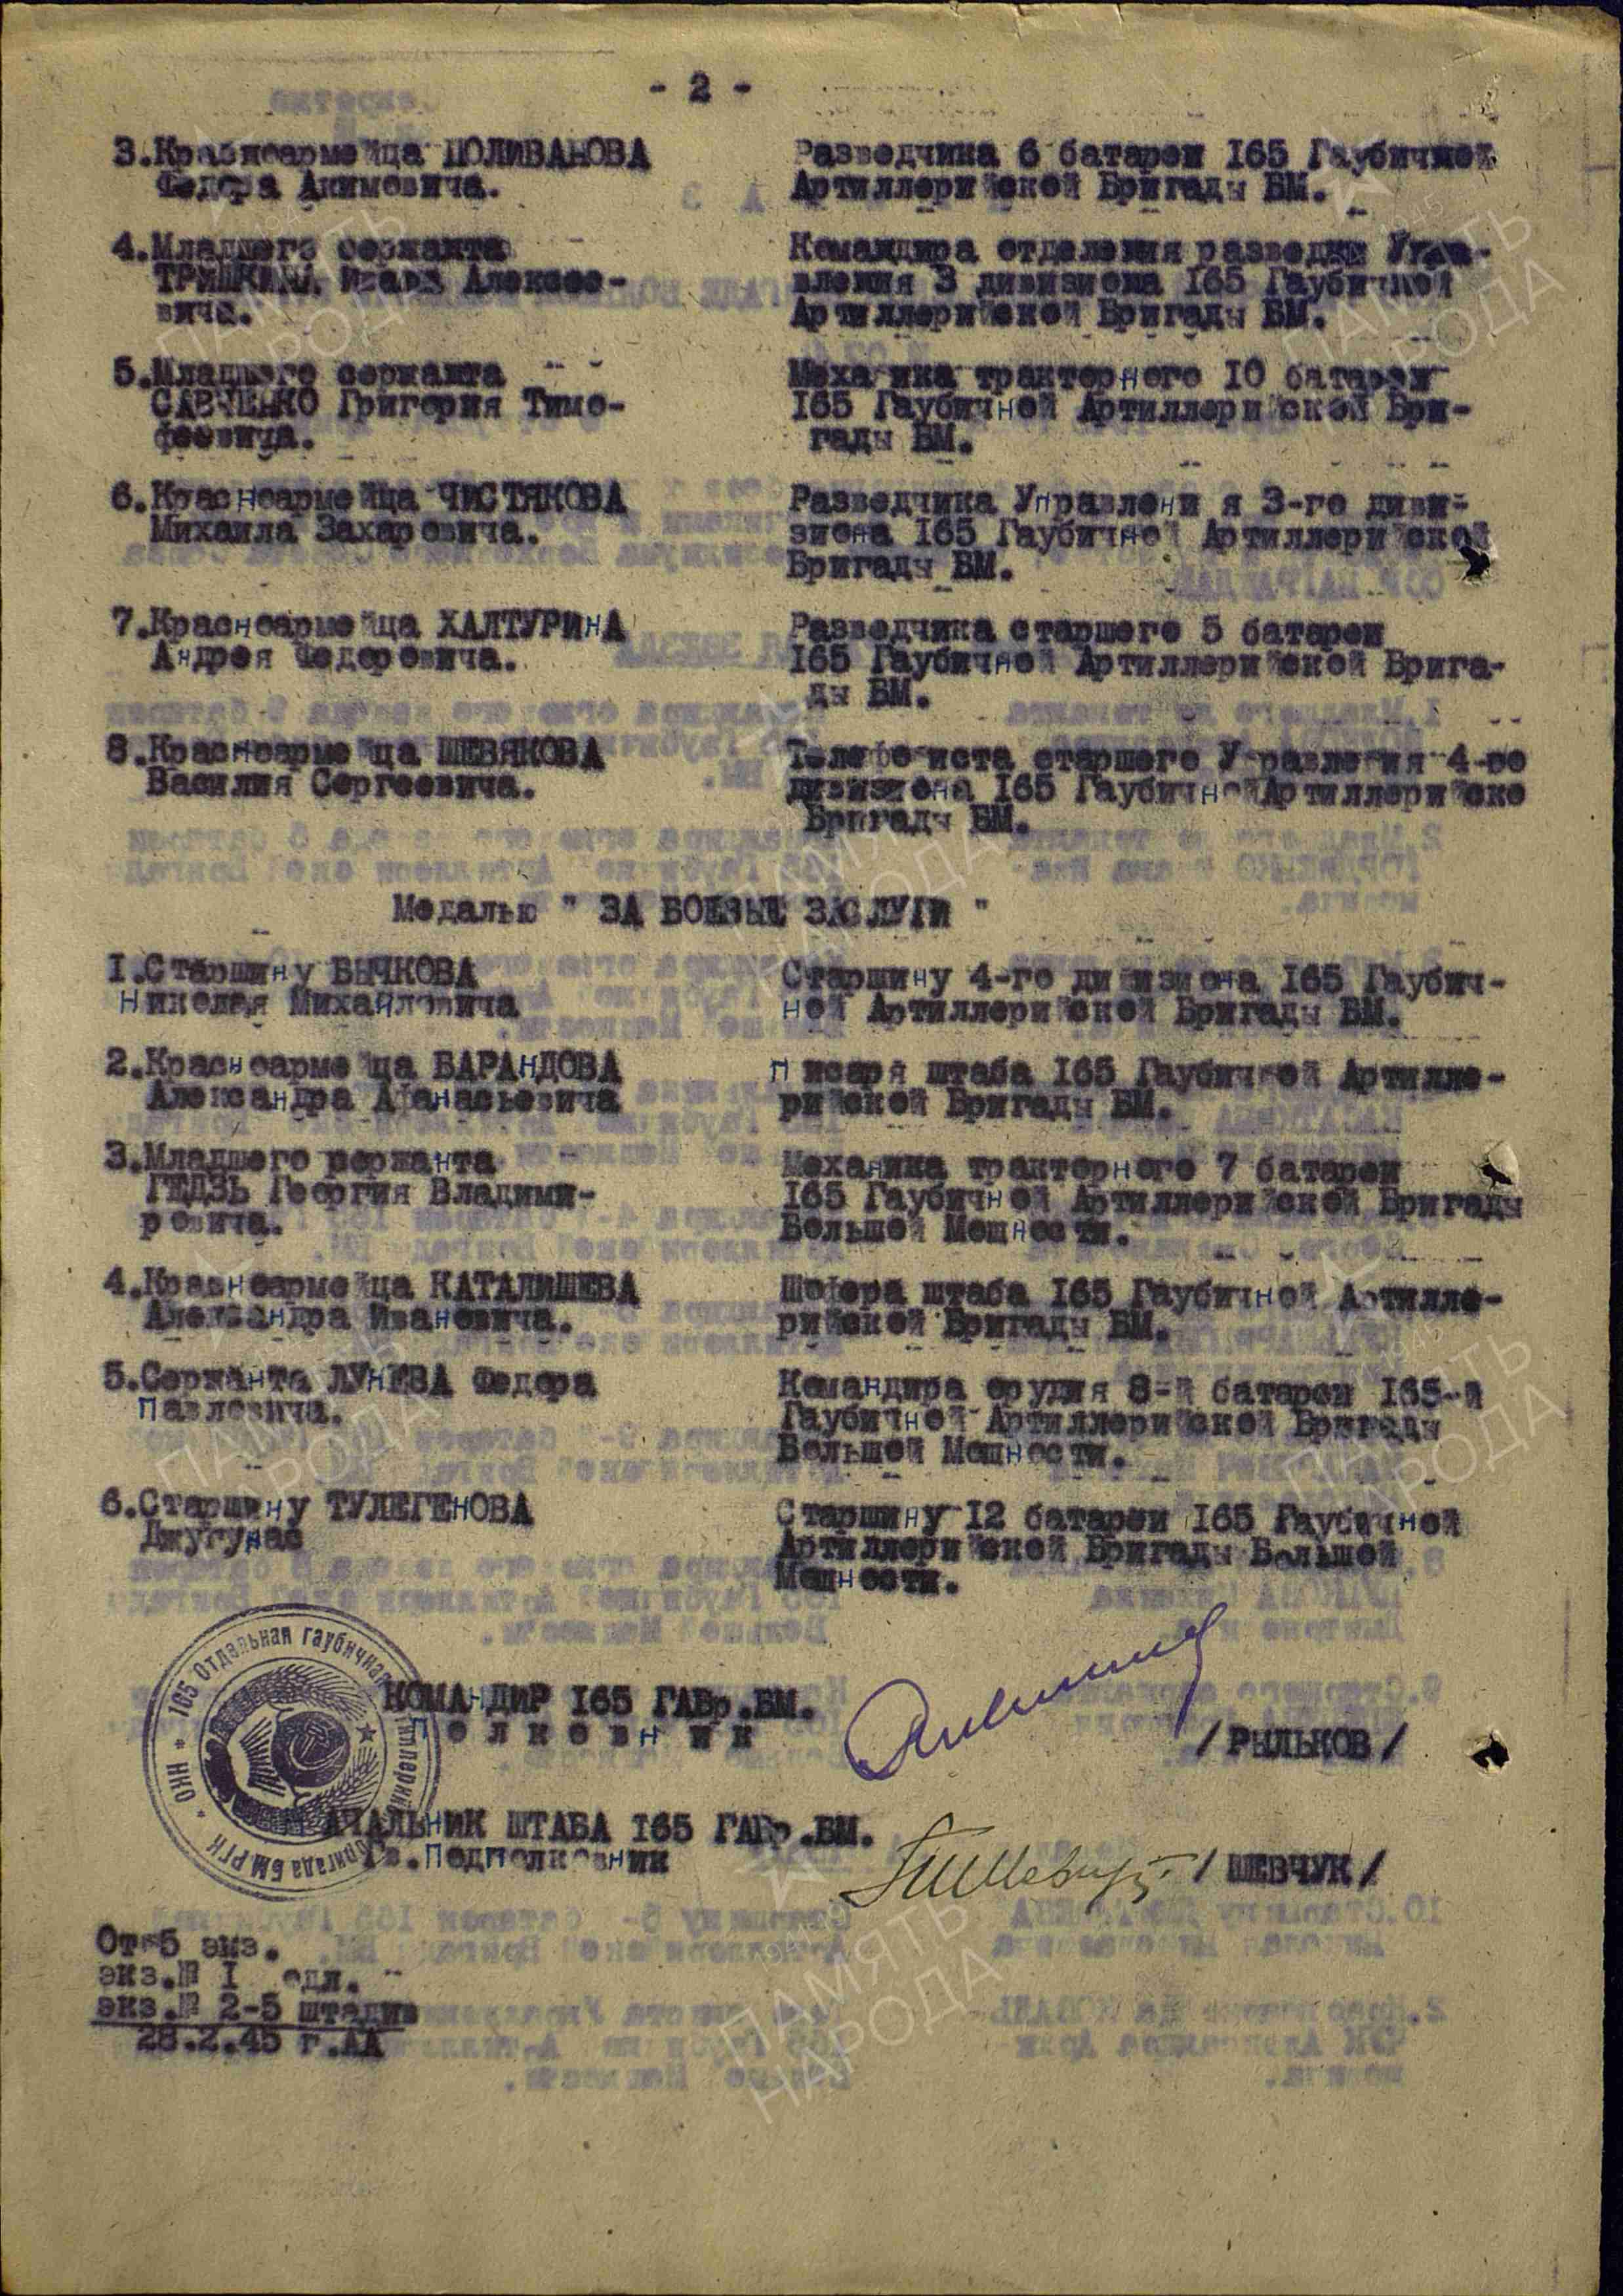 - 2 -
3.Красноармейца ПОЛИВАНОВА
Федора Акимовича.
Разведчика 6 батареи 165 Гаубичной
Артиллерийской Бригады БМ.
4.Младшего сержанта
ТРИШКИНА Ивана Алексее-
вича.
Командира отделения разведки Упра-
вления 3 дивизиона 165 Гаубичной
Артиллерийской Бригады БМ.
5.Младшего сержанта
САВЧЕНКО Григория Тимо-
феевича.
Механика тракторного 10 батареи
165 Гаубичной Артиллерийской Бри-
гады БМ.
6.Красноармейца ЧИСТЯКОВА
Михаила Захаровича.
Разведчика Управления 3-го диви-
зиона 165 Гаубичной Артиллерийской
Бригады БМ.
7.Красноармейца ХАЛТУРИНА
Андрея Федоровича.
Разведчика старшего 5 батареи
165 Гаубичной Артиллерийской Брига-
ды БМ.
8.Красноармейца ШЕВЯКОВА
Василия Сергеевича.
Телефониста старшего Управления 4-го
дивизиона 165 Гаубичной Артиллерийско
Бригады БМ.
Медалью " ЗА БОЕВЫЕ ЗАСЛУГИ "
1.Старшину БЫЧКОВА
Николая Михайловича
Старшину 4-го дивизиона 165 Гаубич-
ной Артиллерийской Бригады БМ.
2.Красноармейца БАРАНДОВА
Александра Афанасьевича
Писаря штаба 165 Гаубичной Артилле-
рийской Бригады БМ.
3.Младшего сержанта
ГЕДЗЬ Георгия Владими-
ровича.
Механика тракторного 7 батареи
165 Гаубичной Артиллерийской Бригады
Большой Мощности.
4.Красноармейца КАТАЛИШЕВА
Александра Ивановича.
Шофера штаба 165 Гаубичной Артилле-
рийской Бригады БМ.
5.Сержанта ЛУНЕВА Федора
Павловича.
Командира орудия 8-й батареи 165-й
Гаубичной Артиллерийской Бригады
Большой Мощности.
6.Старшину ТУЛЕГЕНОВА
Джугунас
Старшину 12 батареи 165 Гаубичной
Артиллерийской Бригады Большой
Мощности.
КОМАНДИР 165 ГАБр.БМ.
Полковник
/ РЫЛЬКОВ /
НАЧАЛЬНИК ШТАБА 165 ГАБр.БМ.
Гв.Подполковник
/ ШЕВЧУК /
* НКО * 165 Отдельная гаубичная артиллерийская бригада БМ РГК
От-5 экз.
экз.№ 1 адл.
экз.№ 2-5 штадив
28.2.45 г.АА
ПАМЯТЬ
НАРОДА